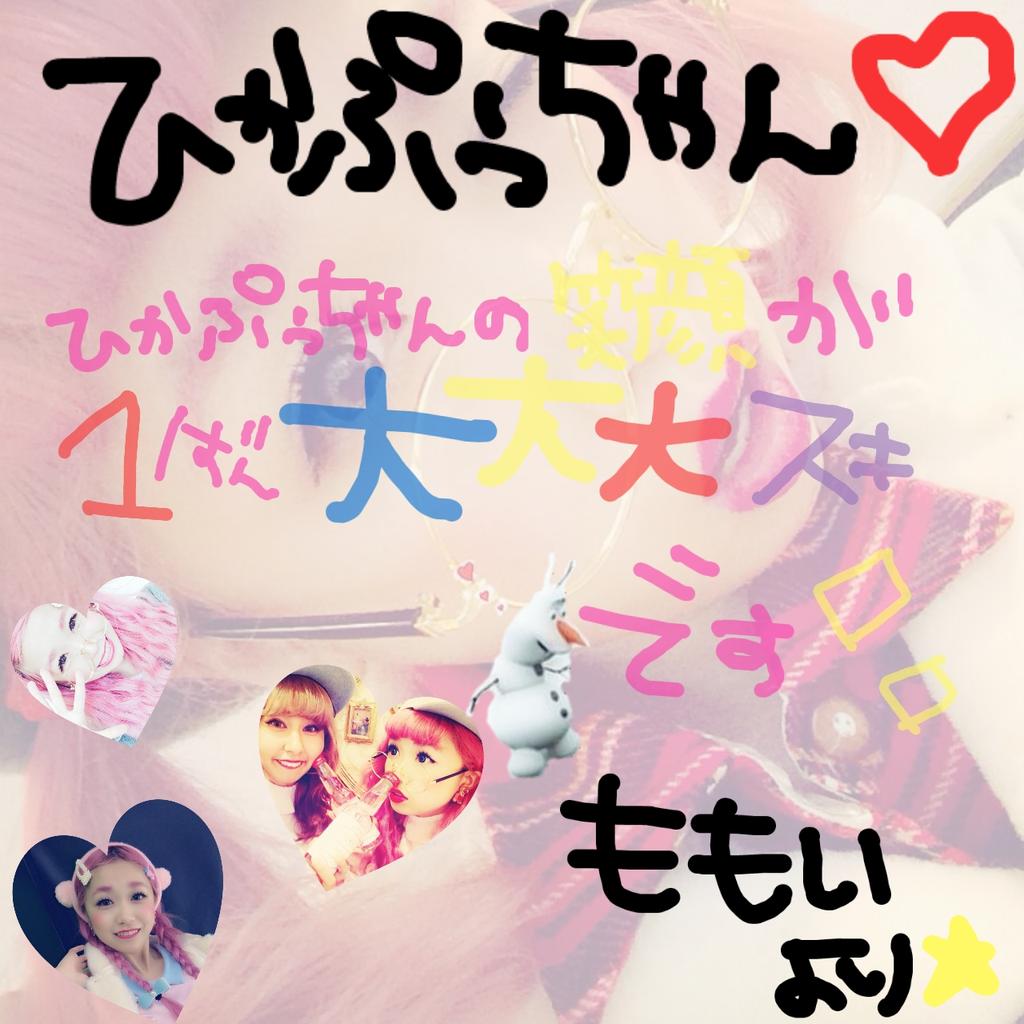 ひかぷぅちゃん♡
ひかぷぅちゃんの笑顔が
1ばん大大大スキ
です
ももい
より